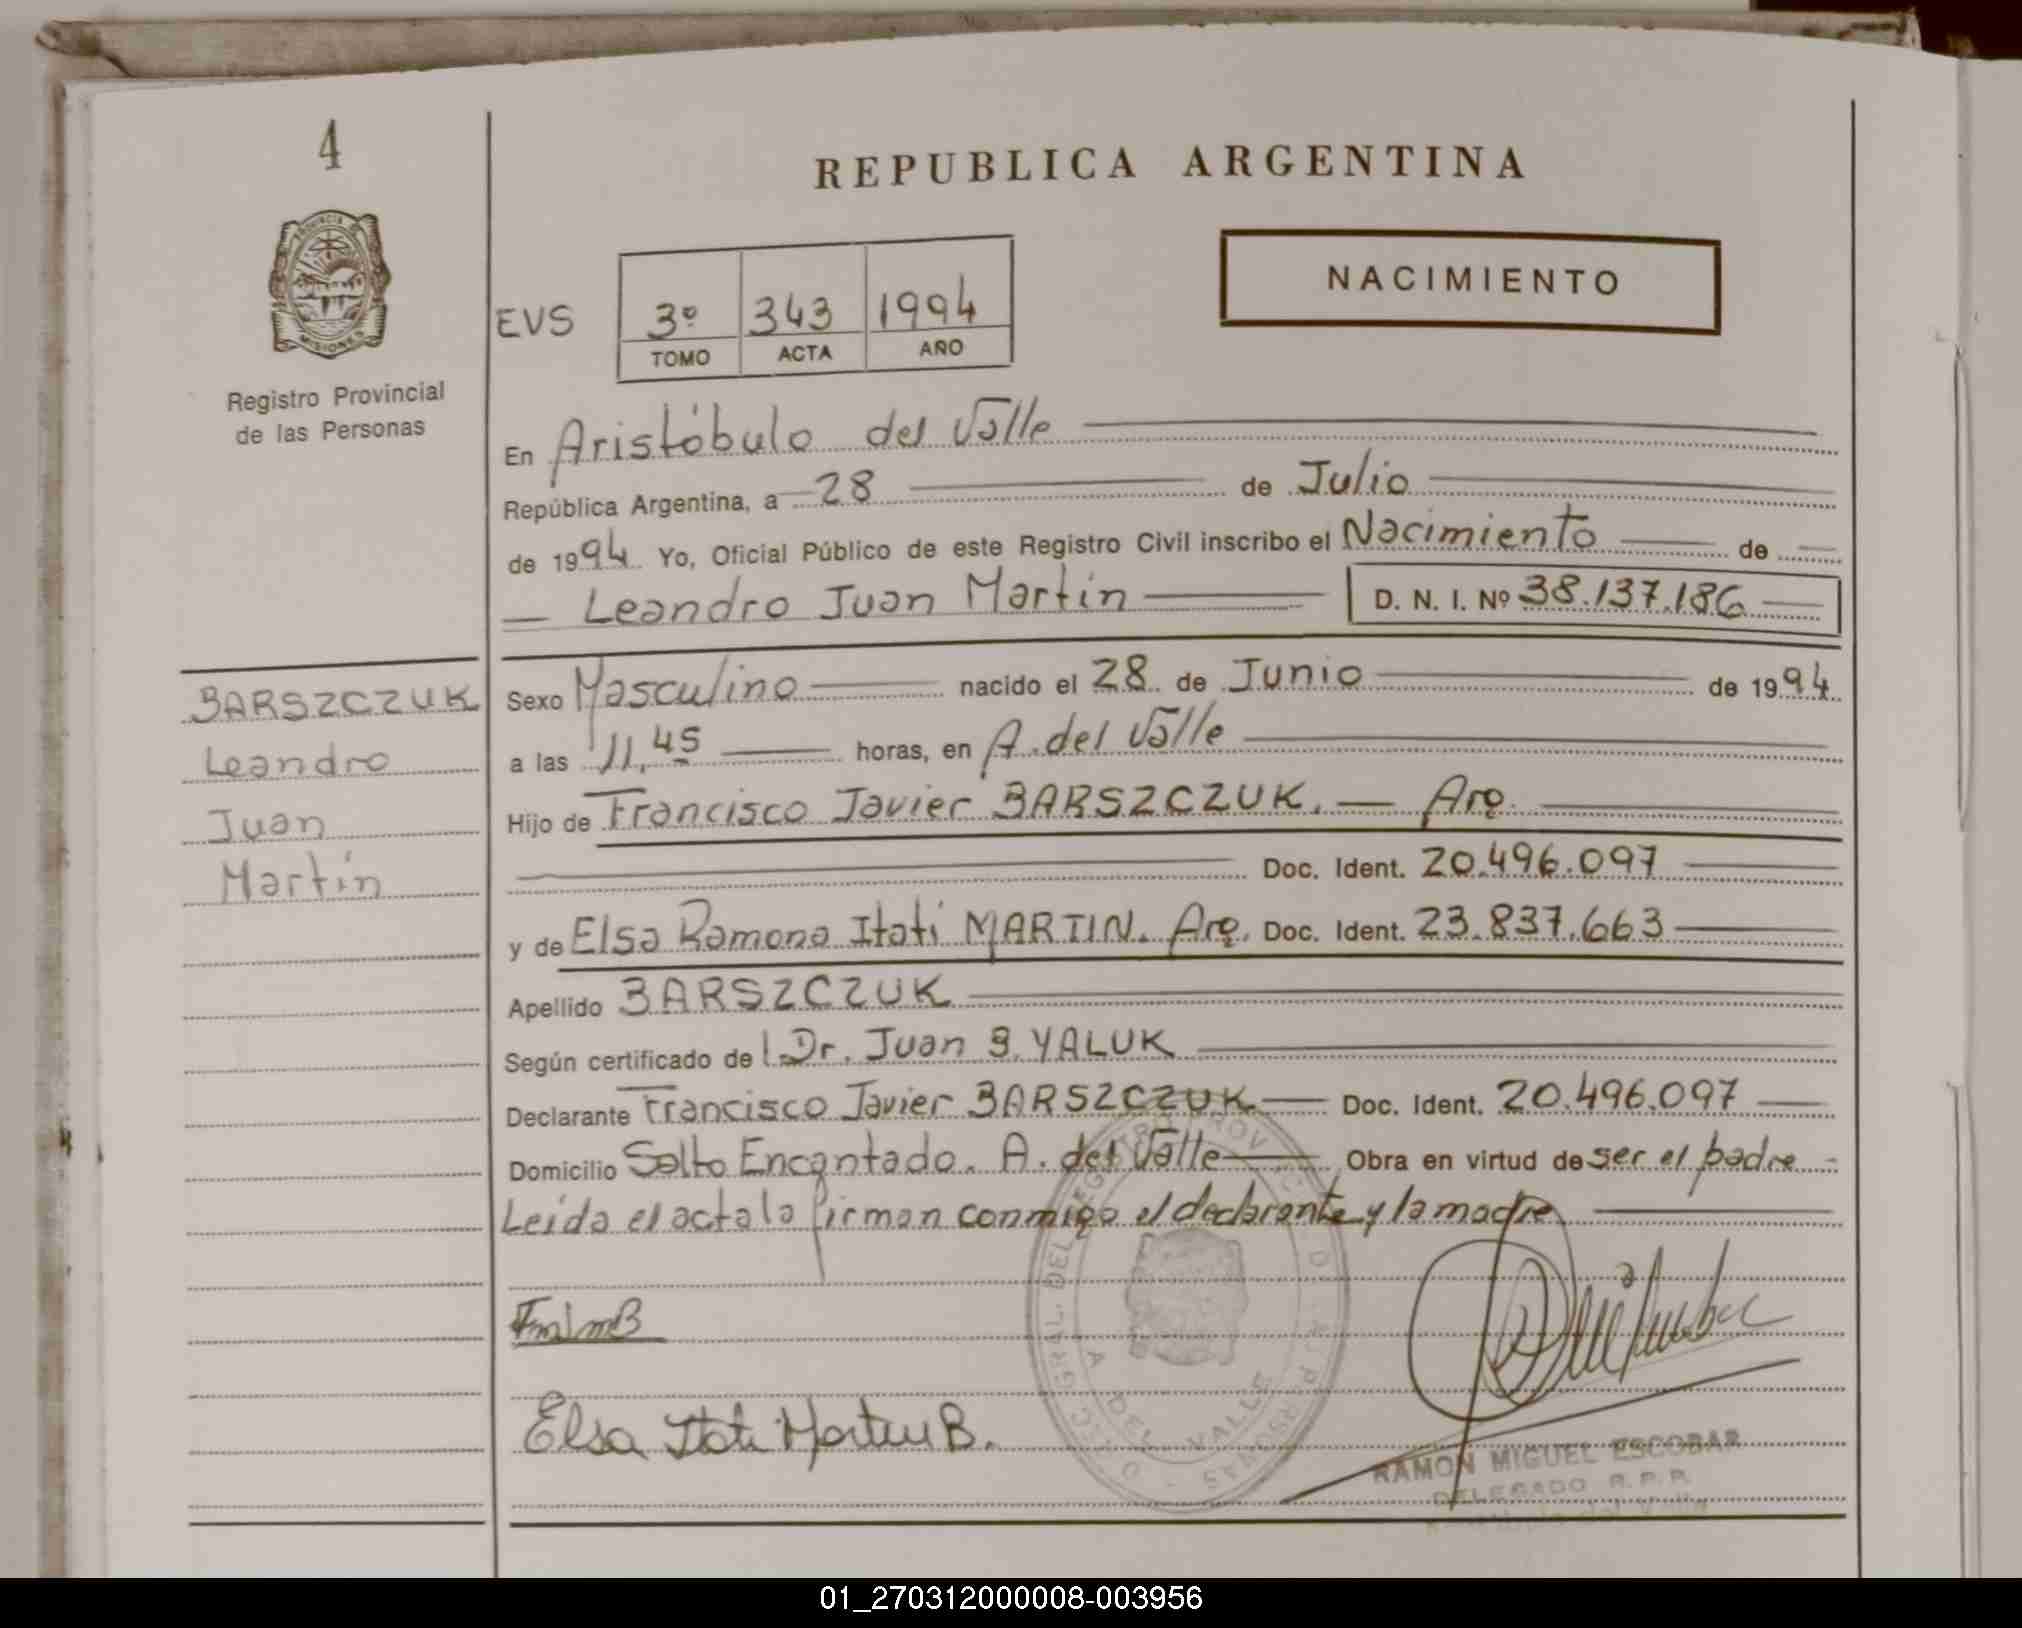 4
REPUBLICA ARGENTINA
PROVINCIA DE
MISIONES
NACIMIENTO
EVS
3º 343 1994
TOMO ACTA AÑO
Registro Provincial
de las Personas
En Aristóbulo del Valle
República Argentina, a 28 de Julio
de 1994 Yo, Oficial Público de este Registro Civil inscribo el Nacimiento de
Leandro Juan Martín D. N. I. Nº 38.137.186
BARSZCZUK
Leandro
Juan
Martín
Sexo Masculino nacido el 28 de Junio de 1994
a las 11,45 horas, en A. del Valle
Hijo de Francisco Javier BARSZCZUK. — Arg.
Doc. Ident. 20.496.097
y de Elsa Ramona Itatí MARTIN. Arg. Doc. Ident. 23.837.663
Apellido BARSZCZUK
Según certificado del Dr. Juan B. YALUK
Declarante Francisco Javier BARSZCZUK — Doc. Ident. 20.496.097
Domicilio Salto Encantado. A. del Valle Obra en virtud de ser el padre
Leída el acta la firman conmigo el declarante y la madre
Elsa Itati Martin B.
A DEL VALLE
RAMON MIGUEL ESCOBAR
DELEGADO R. P. P.
Aristóbulo del Valle
01_270312000008-003956